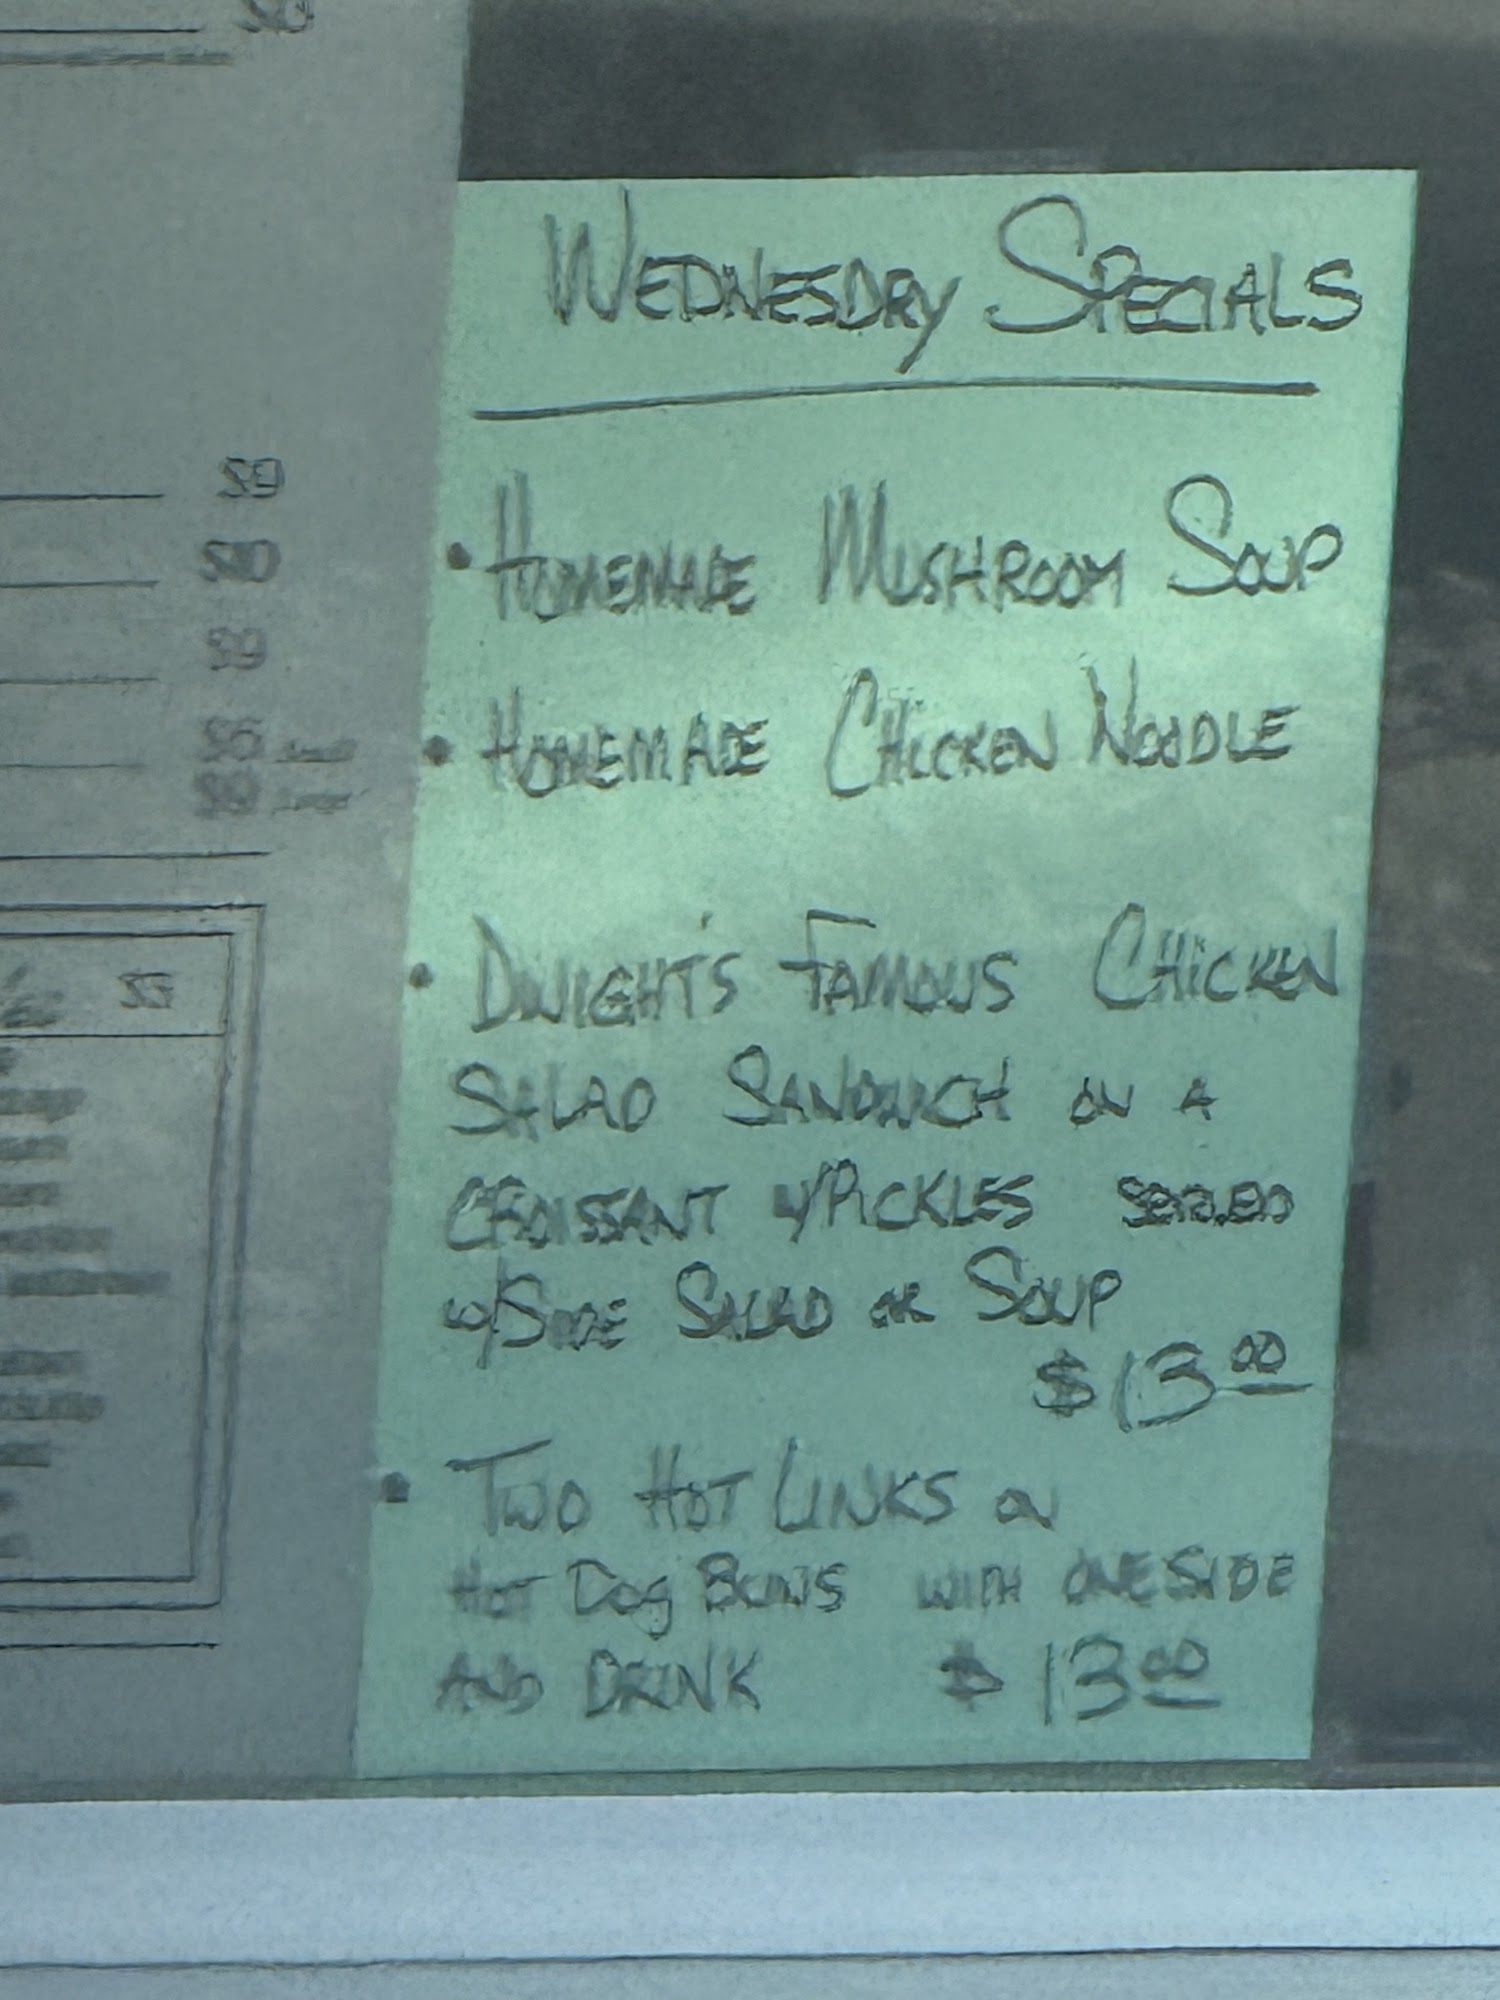 WEDNESDAY SPECIALS
• HOMEMADE MUSHROOM SOUP
• HOMEMADE CHICKEN NOODLE
• DWIGHT'S FAMOUS CHICKEN
SALAD SANDWICH ON A
CROISSANT W/PICKLES SERVED
W/SIDE SALAD OR SOUP
$13.00
• TWO HOT LINKS ON
HOT DOG BUNS WITH ONE SIDE
AND DRINK $13.00